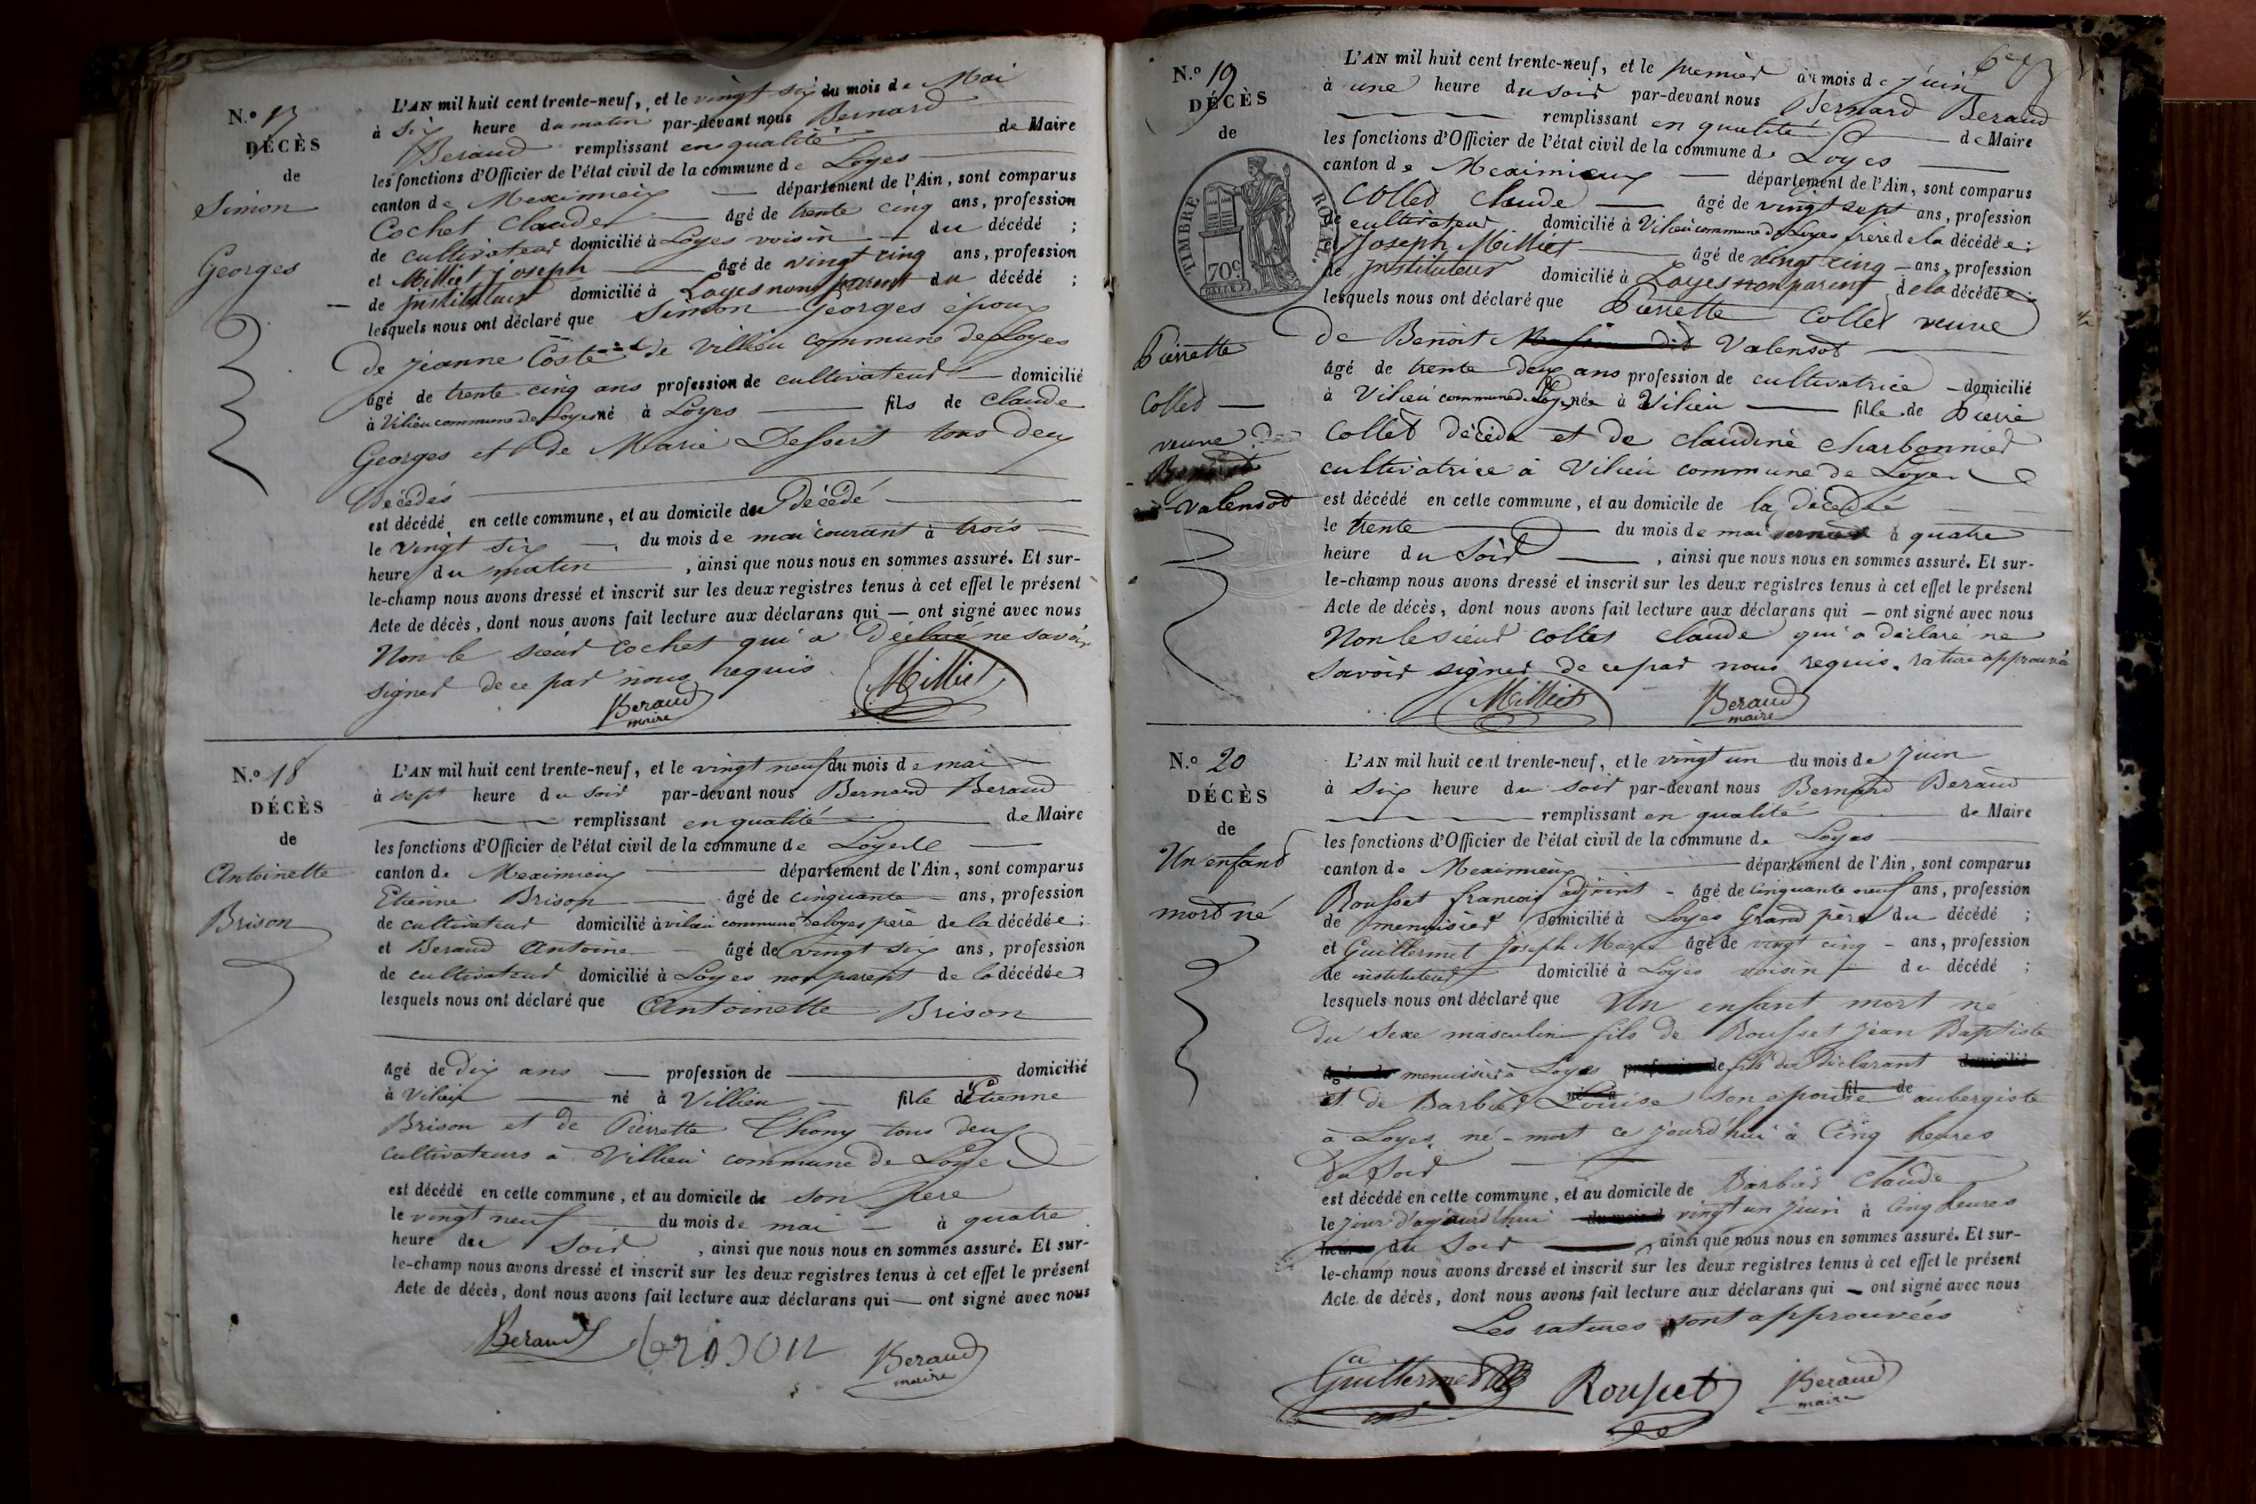 N.º 17
DÉCÈS
de
Simon
Georges
L'AN mil huit cent trente-neuf, et le vingt six du mois de Mai
à six heure du matin par-devant nous Bernard
Beraud remplissant en qualité de Maire
les fonctions d'Officier de l'état civil de la commune de Loyes
canton de Meximieux département de l'Ain, sont comparus
Cochet Claude âgé de trente cinq ans, profession
de cultivateur domicilié à Loyes voisin du décédé ;
et Milliet Joseph âgé de vingt cinq ans, profession
de instituteur domicilié à Loyes non parent du décédé ;
lesquels nous ont déclaré que Simon Georges époux
de jeanne Coste de Villieu commune de Loyes
âgé de trente cinq ans profession de cultivateur domicilié
à Vilieu commune de Loyes né à Loyes fils de Claude
Georges et de Marie Dessert tous deux
Décédés
est décédé en cette commune, et au domicile du Décédé
le vingt six du mois de mai courant à trois
heure du matin, ainsi que nous nous en sommes assuré. Et sur-
le-champ nous avons dressé et inscrit sur les deux registres tenus à cet effet le présent
Acte de décès, dont nous avons fait lecture aux déclarans qui — ont signé avec nous
Non le sieur Cochet qui a déclaré ne savoir
signer de ce par nous requis
Beraud
maire
Milliet
N.º 18
DÉCÈS
de
Antoinette
Brison
L'AN mil huit cent trente-neuf, et le vingt neuf du mois de mai
à sept heure du soir par-devant nous Bernard Beraud
remplissant en qualité de Maire
les fonctions d'Officier de l'état civil de la commune de Loyes
canton de Meximieux département de l'Ain, sont comparus
Etienne Brison âgé de cinquante ans, profession
de cultivateur domicilié à vilieu commune de loyes père de la décédée ;
et Beraud Antoine âgé de vingt six ans, profession
de cultivateur domicilié à Loyes non parent de la décédée ;
lesquels nous ont déclaré que Antoinette Brison
âgé de dix ans profession de domicilié
à Vilieu né à Villieu fille d'Etienne
Brison et de Pierrette Thony tous deux
cultivateurs à Villieu commune de Loyes
est décédé en cette commune, et au domicile de son père
le vingt neuf du mois de mai à quatre
heure du soir, ainsi que nous nous en sommes assuré. Et sur-
le-champ nous avons dressé et inscrit sur les deux registres tenus à cet effet le présent
Acte de décès, dont nous avons fait lecture aux déclarans qui — ont signé avec nous
Beraud brison Beraud
maire
N.º 19
DÉCÈS
de
TIMBRE ROYAL
70 c
Pierrette
Collet
veuve de
Valensot
L'AN mil huit cent trente-neuf, et le premier du mois de juin
à une heure du soir par-devant nous Bernard Beraud
remplissant en qualité de Maire
les fonctions d'Officier de l'état civil de la commune de Loyes
canton de Meximieux département de l'Ain, sont comparus
Collet Claude âgé de vingt sept ans, profession
de cultivateur domicilié à Vilieu commune de Loyes frère de la décédée ;
et Joseph Milliet âgé de vingt cinq ans, profession
de instituteur domicilié à Loyes non parent de la décédée ;
lesquels nous ont déclaré que Pierrette Collet veuve
de Benoit Valensot
âgé de trente deux ans profession de cultivatrice domicilié
à Vilieu commune de Loyes née à Vilieu fille de Pierre
Collet décédé et de claudine charbonnier
cultivatrice à Vilieu commune de Loyes
est décédé en cette commune, et au domicile de la décédée
le trente du mois de mai dernier à quatre
heure du soir, ainsi que nous nous en sommes assuré. Et sur-
le-champ nous avons dressé et inscrit sur les deux registres tenus à cet effet le présent
Acte de décès, dont nous avons fait lecture aux déclarans qui — ont signé avec nous
Non le sieur Collet claude qui a déclaré ne
savoir signer de ce par nous requis. rature approuvée
Milliet Beraud
maire
N.º 20
DÉCÈS
de
Un enfant
mort né
L'AN mil huit cent trente-neuf, et le vingt un du mois de juin
à six heure du soir par-devant nous Bernard Beraud
remplissant en qualité de Maire
les fonctions d'Officier de l'état civil de la commune de Loyes
canton de Meximieux département de l'Ain, sont comparus
Rousset francois adjoint âgé de cinquante neuf ans, profession
de menuisier domicilié à Loyes Grand père du décédé ;
et Guillermet Joseph Marie âgé de vingt cinq ans, profession
de instituteur domicilié à Loyes voisin du décédé ;
lesquels nous ont déclaré que Un enfant mort né
du sexe masculin fils de Rousset jean Baptiste
menuisier à Loyes fils du Déclarant
et de Barbier Louise son epouse aubergiste
à Loyes, né-mort ce jourd'hui à Cinq heures
du soir
est décédé en cette commune, et au domicile de Barbier Claude
le jour d'aujourd'hui vingt un juin à cinq heures
du soir, ainsi que nous nous en sommes assuré. Et sur-
le-champ nous avons dressé et inscrit sur les deux registres tenus à cet effet le présent
Acte de décès, dont nous avons fait lecture aux déclarans qui — ont signé avec nous
Les ratures sont approuvées
Guillermet Rousset Beraud
maire